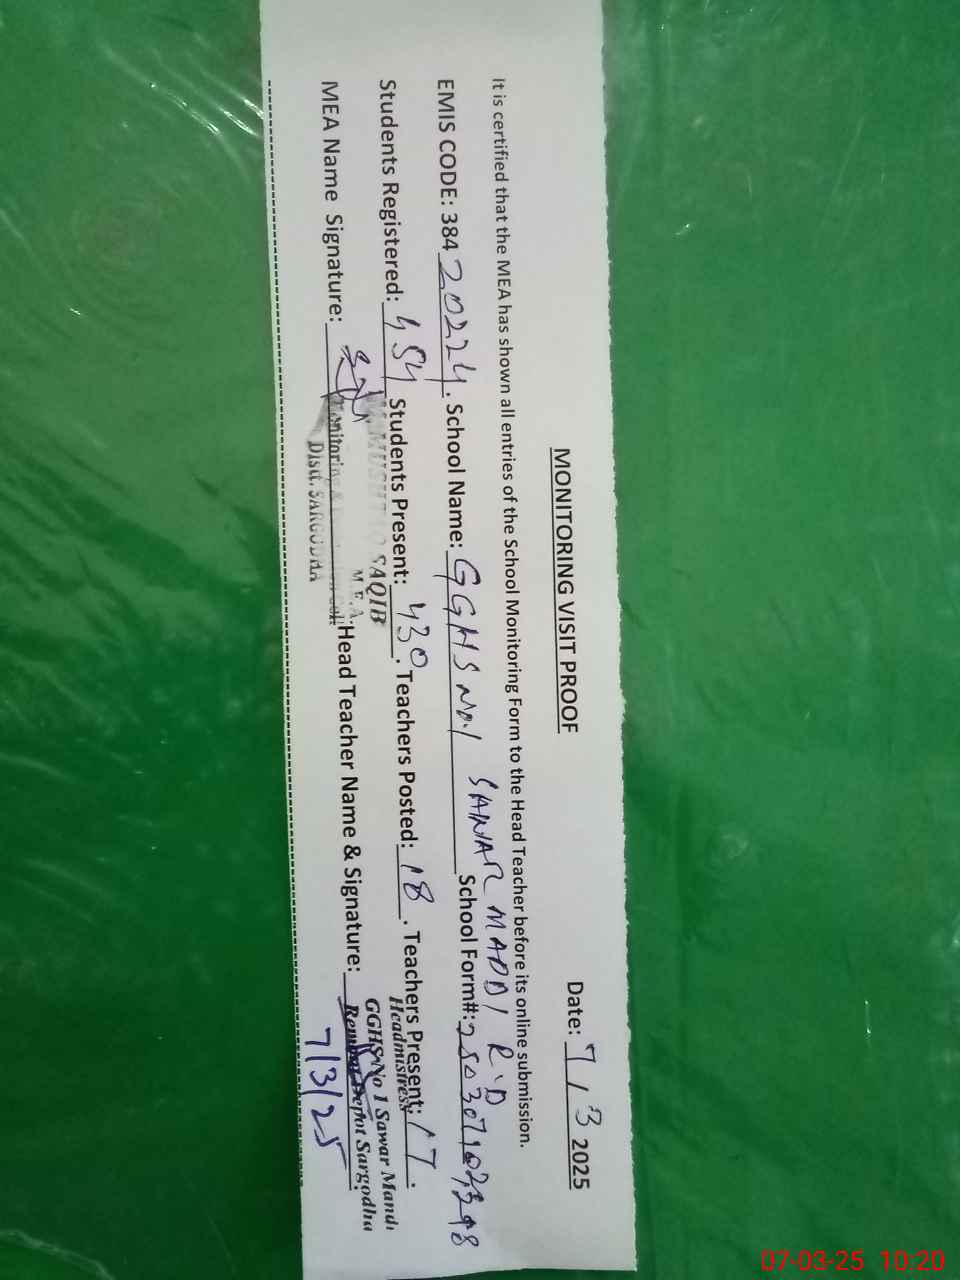 MONITORING VISIT PROOF
Date: 7 / 3 2025
It is certified that the MEA has shown all entries of the School Monitoring Form to the Head Teacher before its online submission.
EMIS CODE: 38420224. School Name: GGHS No.1 SAWAR MADDI R.D School Form#:
Students Registered: 454 Students Present: 430. Teachers Posted: 18. Teachers Present: 17.
MEA Name Signature: Head Teacher Name & Signature:
SAQIB
M.E.A.
Monitoring &
Distt. SARGODHA
Headmistress
GGHS No 1 Sawar Mandi
Depot Sargodha
7/3/25
07-03-25 10:20